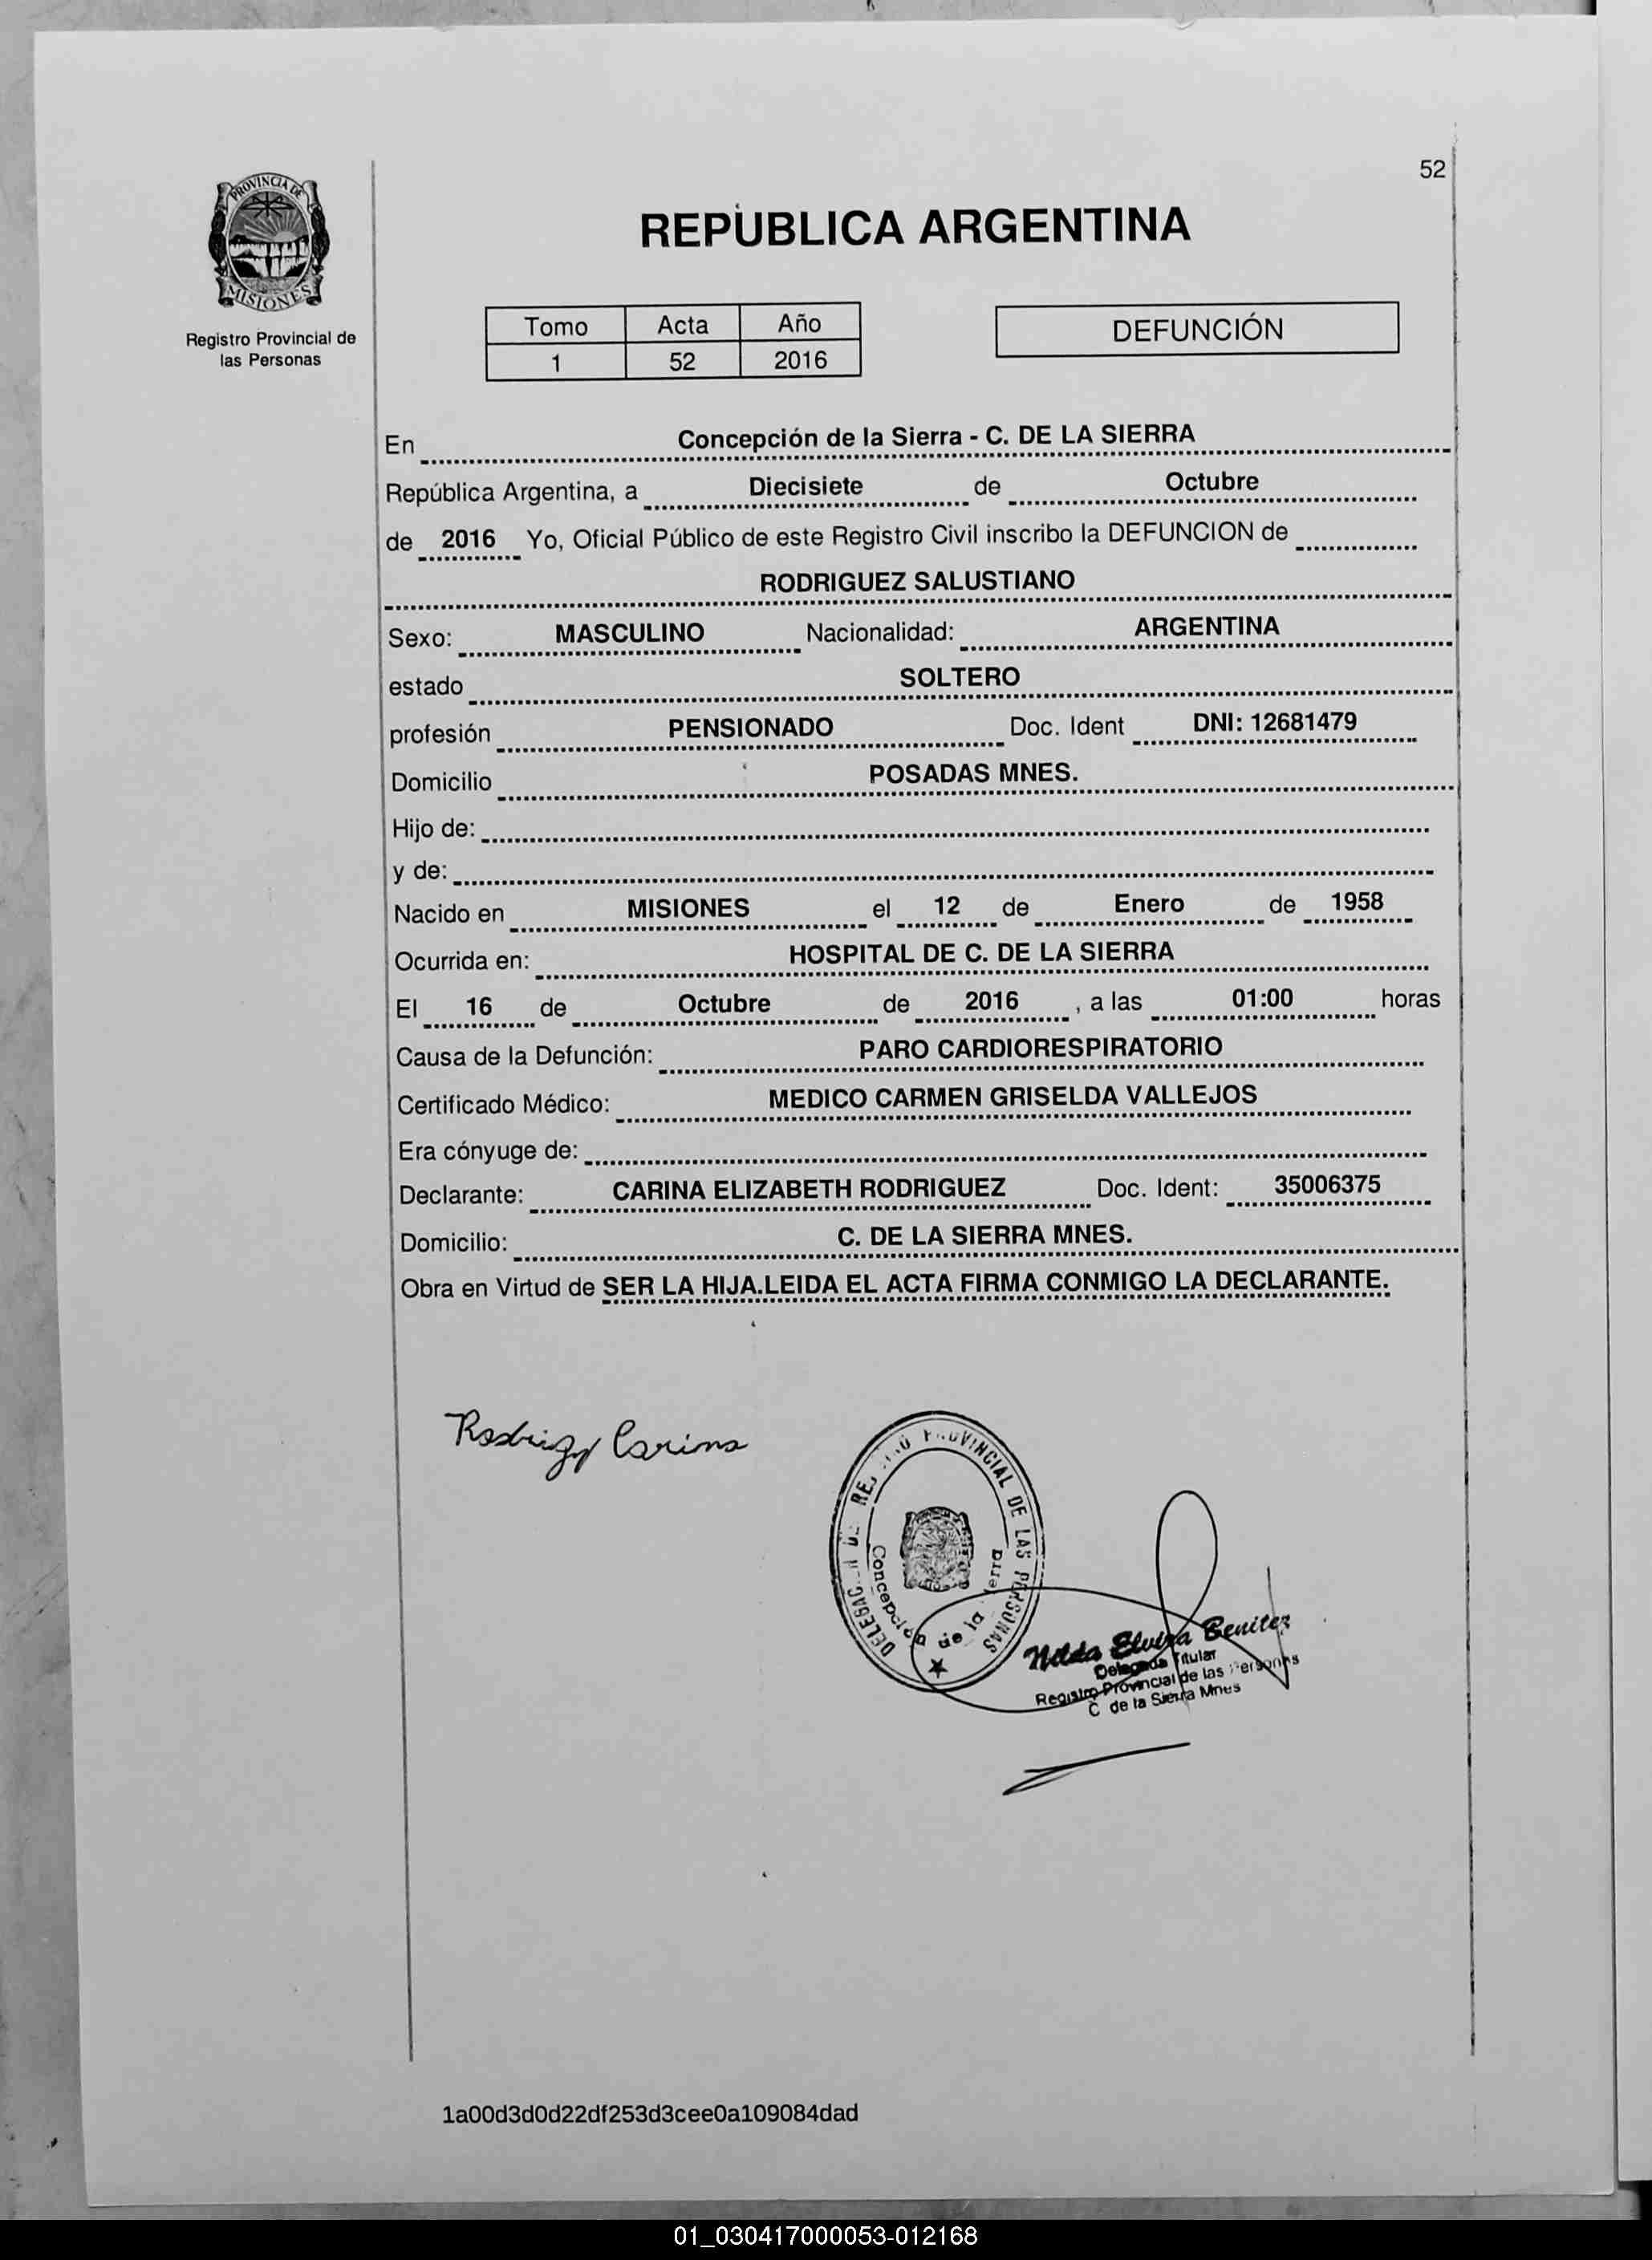 52
PROVINCIA DE
MISIONES
Registro Provincial de
las Personas
REPUBLICA ARGENTINA
Tomo Acta Año
1 52 2016
DEFUNCIÓN
En Concepción de la Sierra - C. DE LA SIERRA
República Argentina, a Diecisiete de Octubre
de 2016 Yo, Oficial Público de este Registro Civil inscribo la DEFUNCION de
RODRIGUEZ SALUSTIANO
Sexo: MASCULINO Nacionalidad: ARGENTINA
estado SOLTERO
profesión PENSIONADO Doc. Ident DNI: 12681479
Domicilio POSADAS MNES.
Hijo de:
y de:
Nacido en MISIONES el 12 de Enero de 1958
Ocurrida en: HOSPITAL DE C. DE LA SIERRA
El 16 de Octubre de 2016 , a las 01:00 horas
Causa de la Defunción: PARO CARDIORESPIRATORIO
Certificado Médico: MEDICO CARMEN GRISELDA VALLEJOS
Era cónyuge de:
Declarante: CARINA ELIZABETH RODRIGUEZ Doc. Ident: 35006375
Domicilio: C. DE LA SIERRA MNES.
Obra en Virtud de SER LA HIJA.LEIDA EL ACTA FIRMA CONMIGO LA DECLARANTE.
Carina
PROVINCIAL DE LAS PERSONAS
Concepción de la
Nilda Elvira Benitez
Delegada Titular
Registro Provincial de las Personas
C de la Sierra Mnes
1a00d3d0d22df253d3cee0a109084dad
01_030417000053-012168